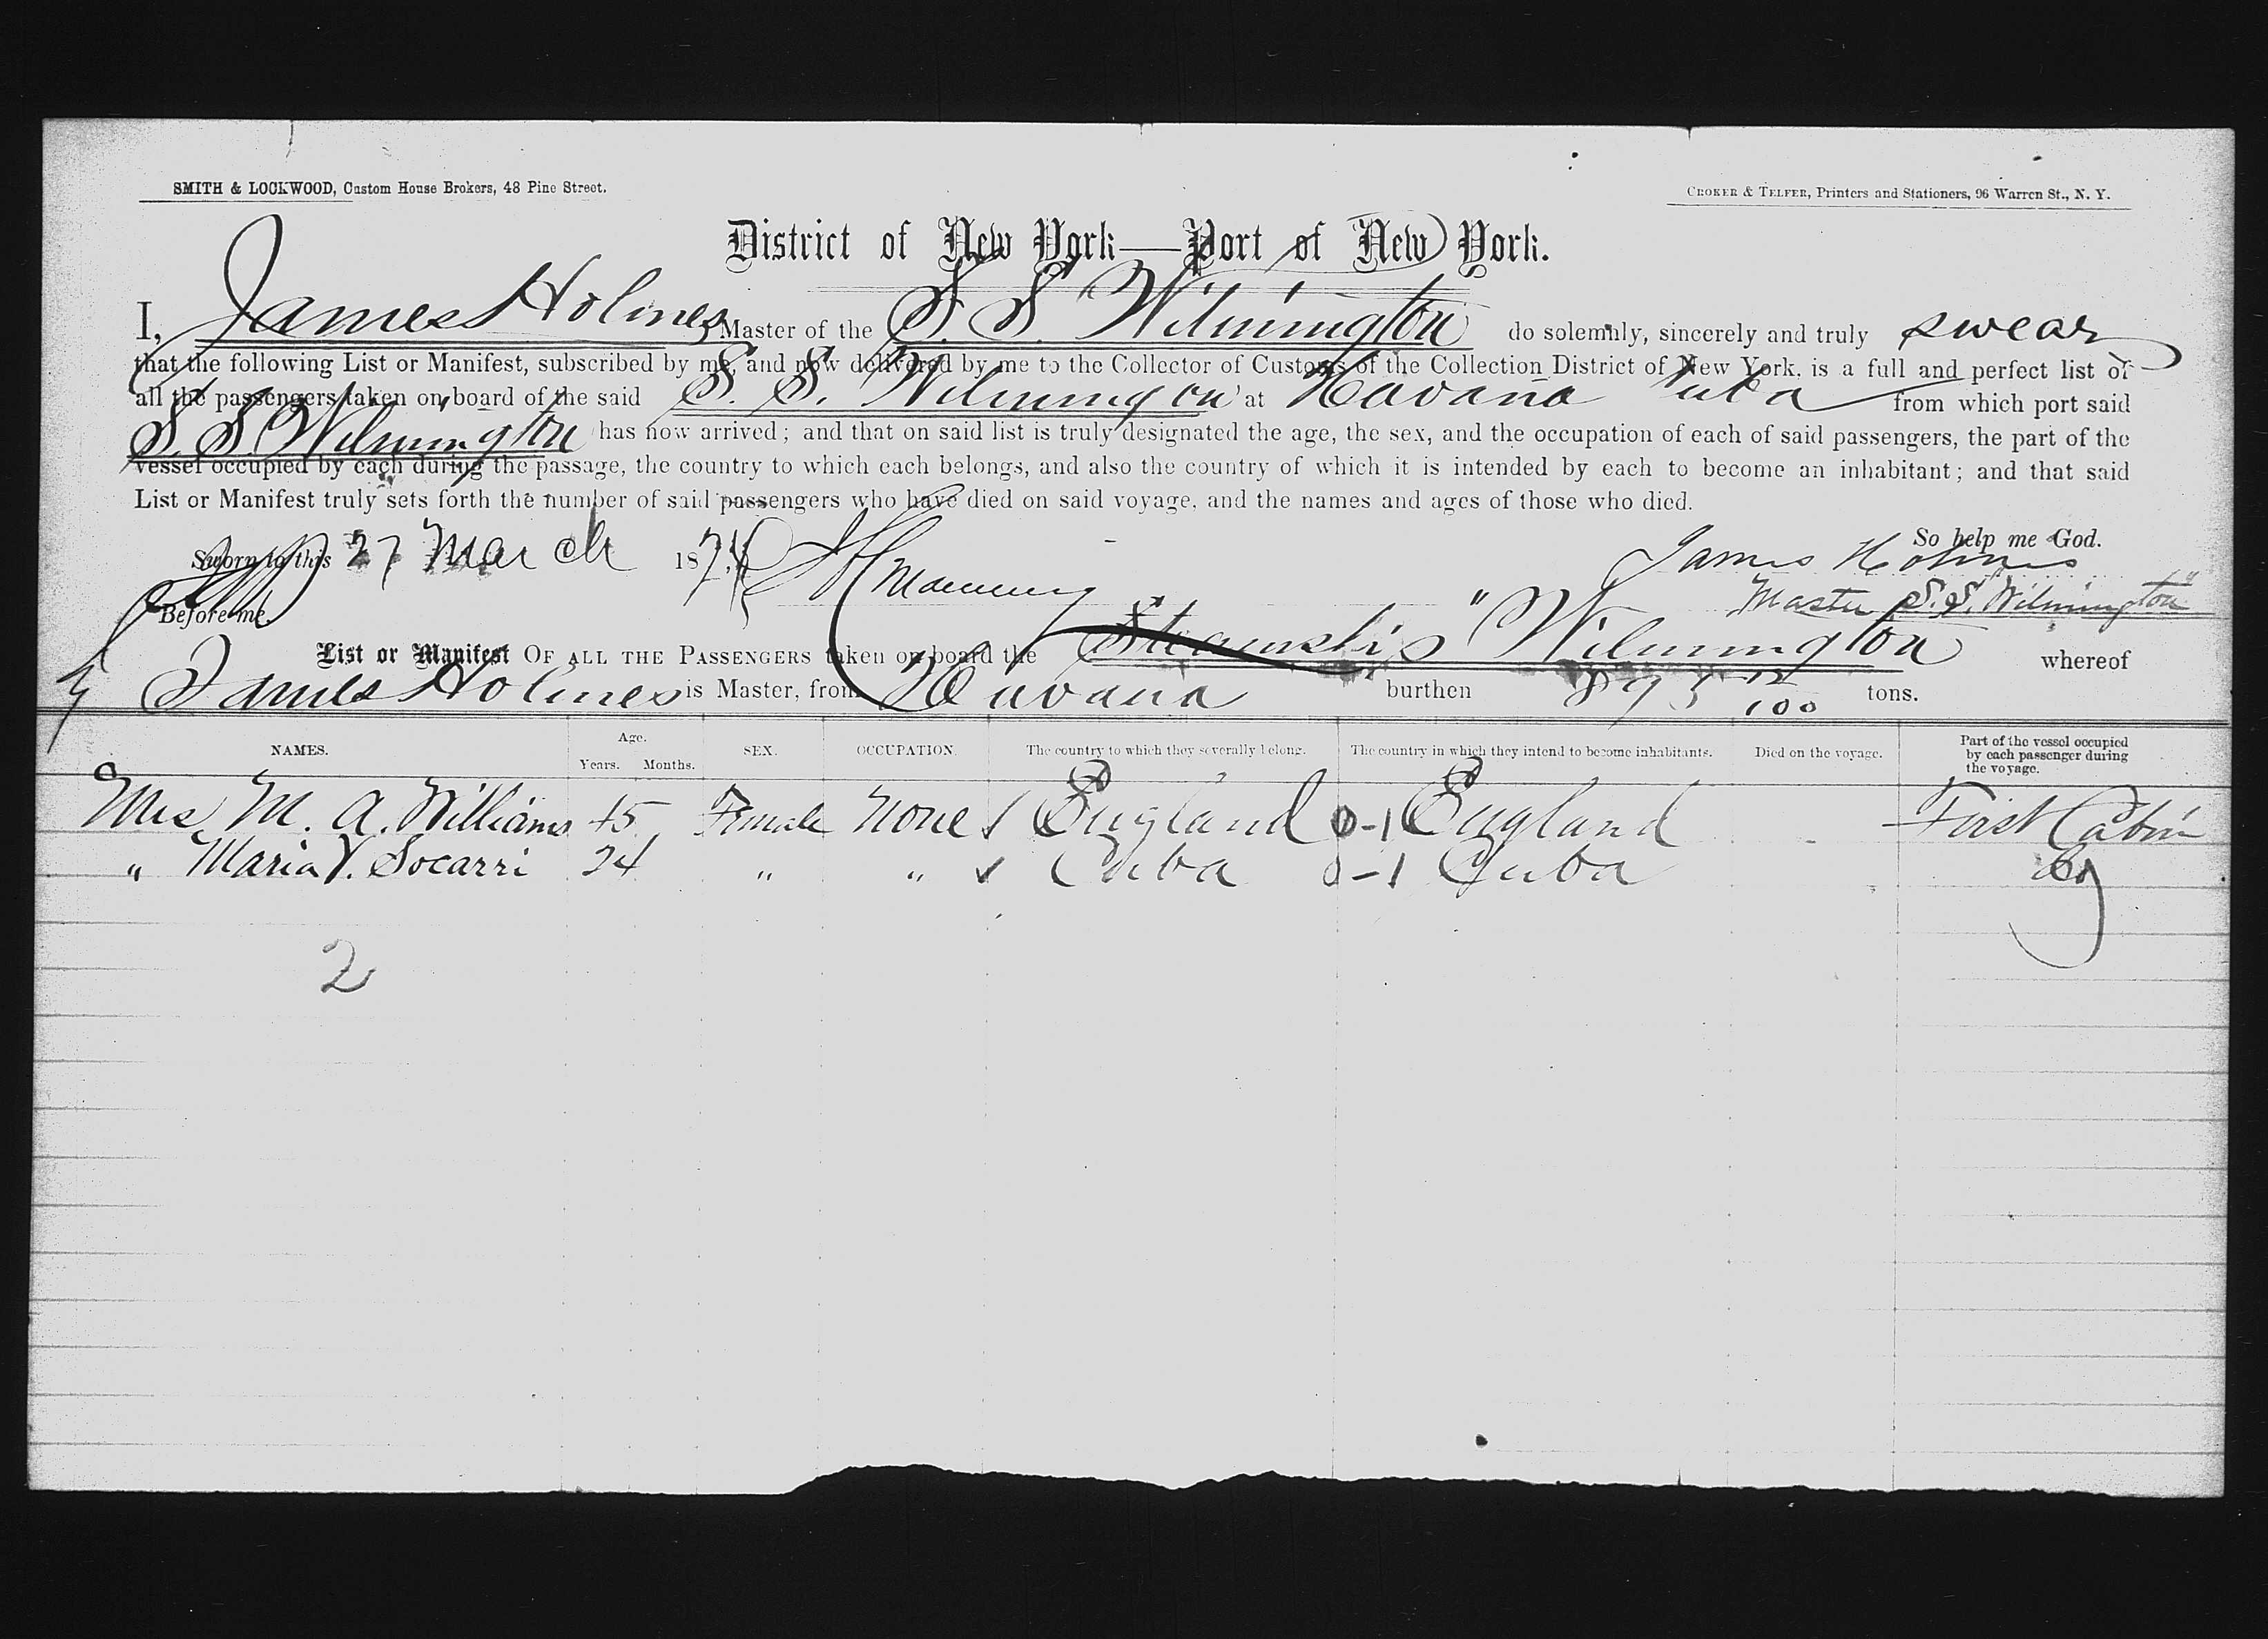 SMITH & LOCKWOOD, Custom House Brokers, 48 Pine Street.
CROKER & TELFER, Printers and Stationers, 96 Warren St., N. Y.
District of New York—Port of New York.
I, James Holmes Master of the S. S. "Wilmington do solemnly, sincerely and truly swear
that the following List or Manifest, subscribed by me, and now delivered by me to the Collector of Customs of the Collection District of New York, is a full and perfect list of
all the passengers taken on board of the said S. S. Wilmington at Havana Cuba from which port said
S. S. Wilmington has now arrived; and that on said list is truly designated the age, the sex, and the occupation of each of said passengers, the part of the
vessel occupied by each during the passage, the country to which each belongs, and also the country of which it is intended by each to become an inhabitant; and that said
List or Manifest truly sets forth the number of said passengers who have died on said voyage, and the names and ages of those who died.
So help me God.
Sworn to this 27 March 1874 Manning James Holmes
Before me. Master S. S. "Wilmington"
List or Manifest OF ALL THE PASSENGERS taken on board the Steamship "Wilmington whereof
James Holmes is Master, from Havana burthen 895 /100 tons.
NAMES. Age. Years. Months. SEX. OCCUPATION. The country to which they severally belong. The country in which they intend to become inhabitants. Died on the voyage. Part of the vessel occupied by each passenger during the voyage.
Mrs M. A. Williams 45 Female None England 0-1 England First Cabin
" Maria V. Socarri 24 " " Cuba 0-1 Cuba Do
2